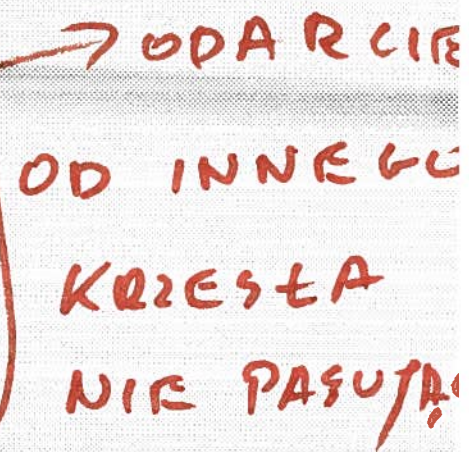 → ODARCIE
OD INNEGO
KRZESŁA
NIE PASUJĄC